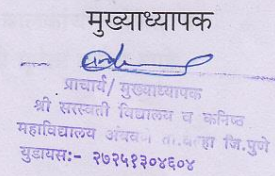 मुख्याध्यापक
प्राचार्य/ मुख्याध्यापक
श्री सरस्वती विद्यालय व कनिष्ठ
महाविद्यालय अंबवणे ता.वेल्हा जि.पुणे
युडायस:- २७२५१३०४६०४